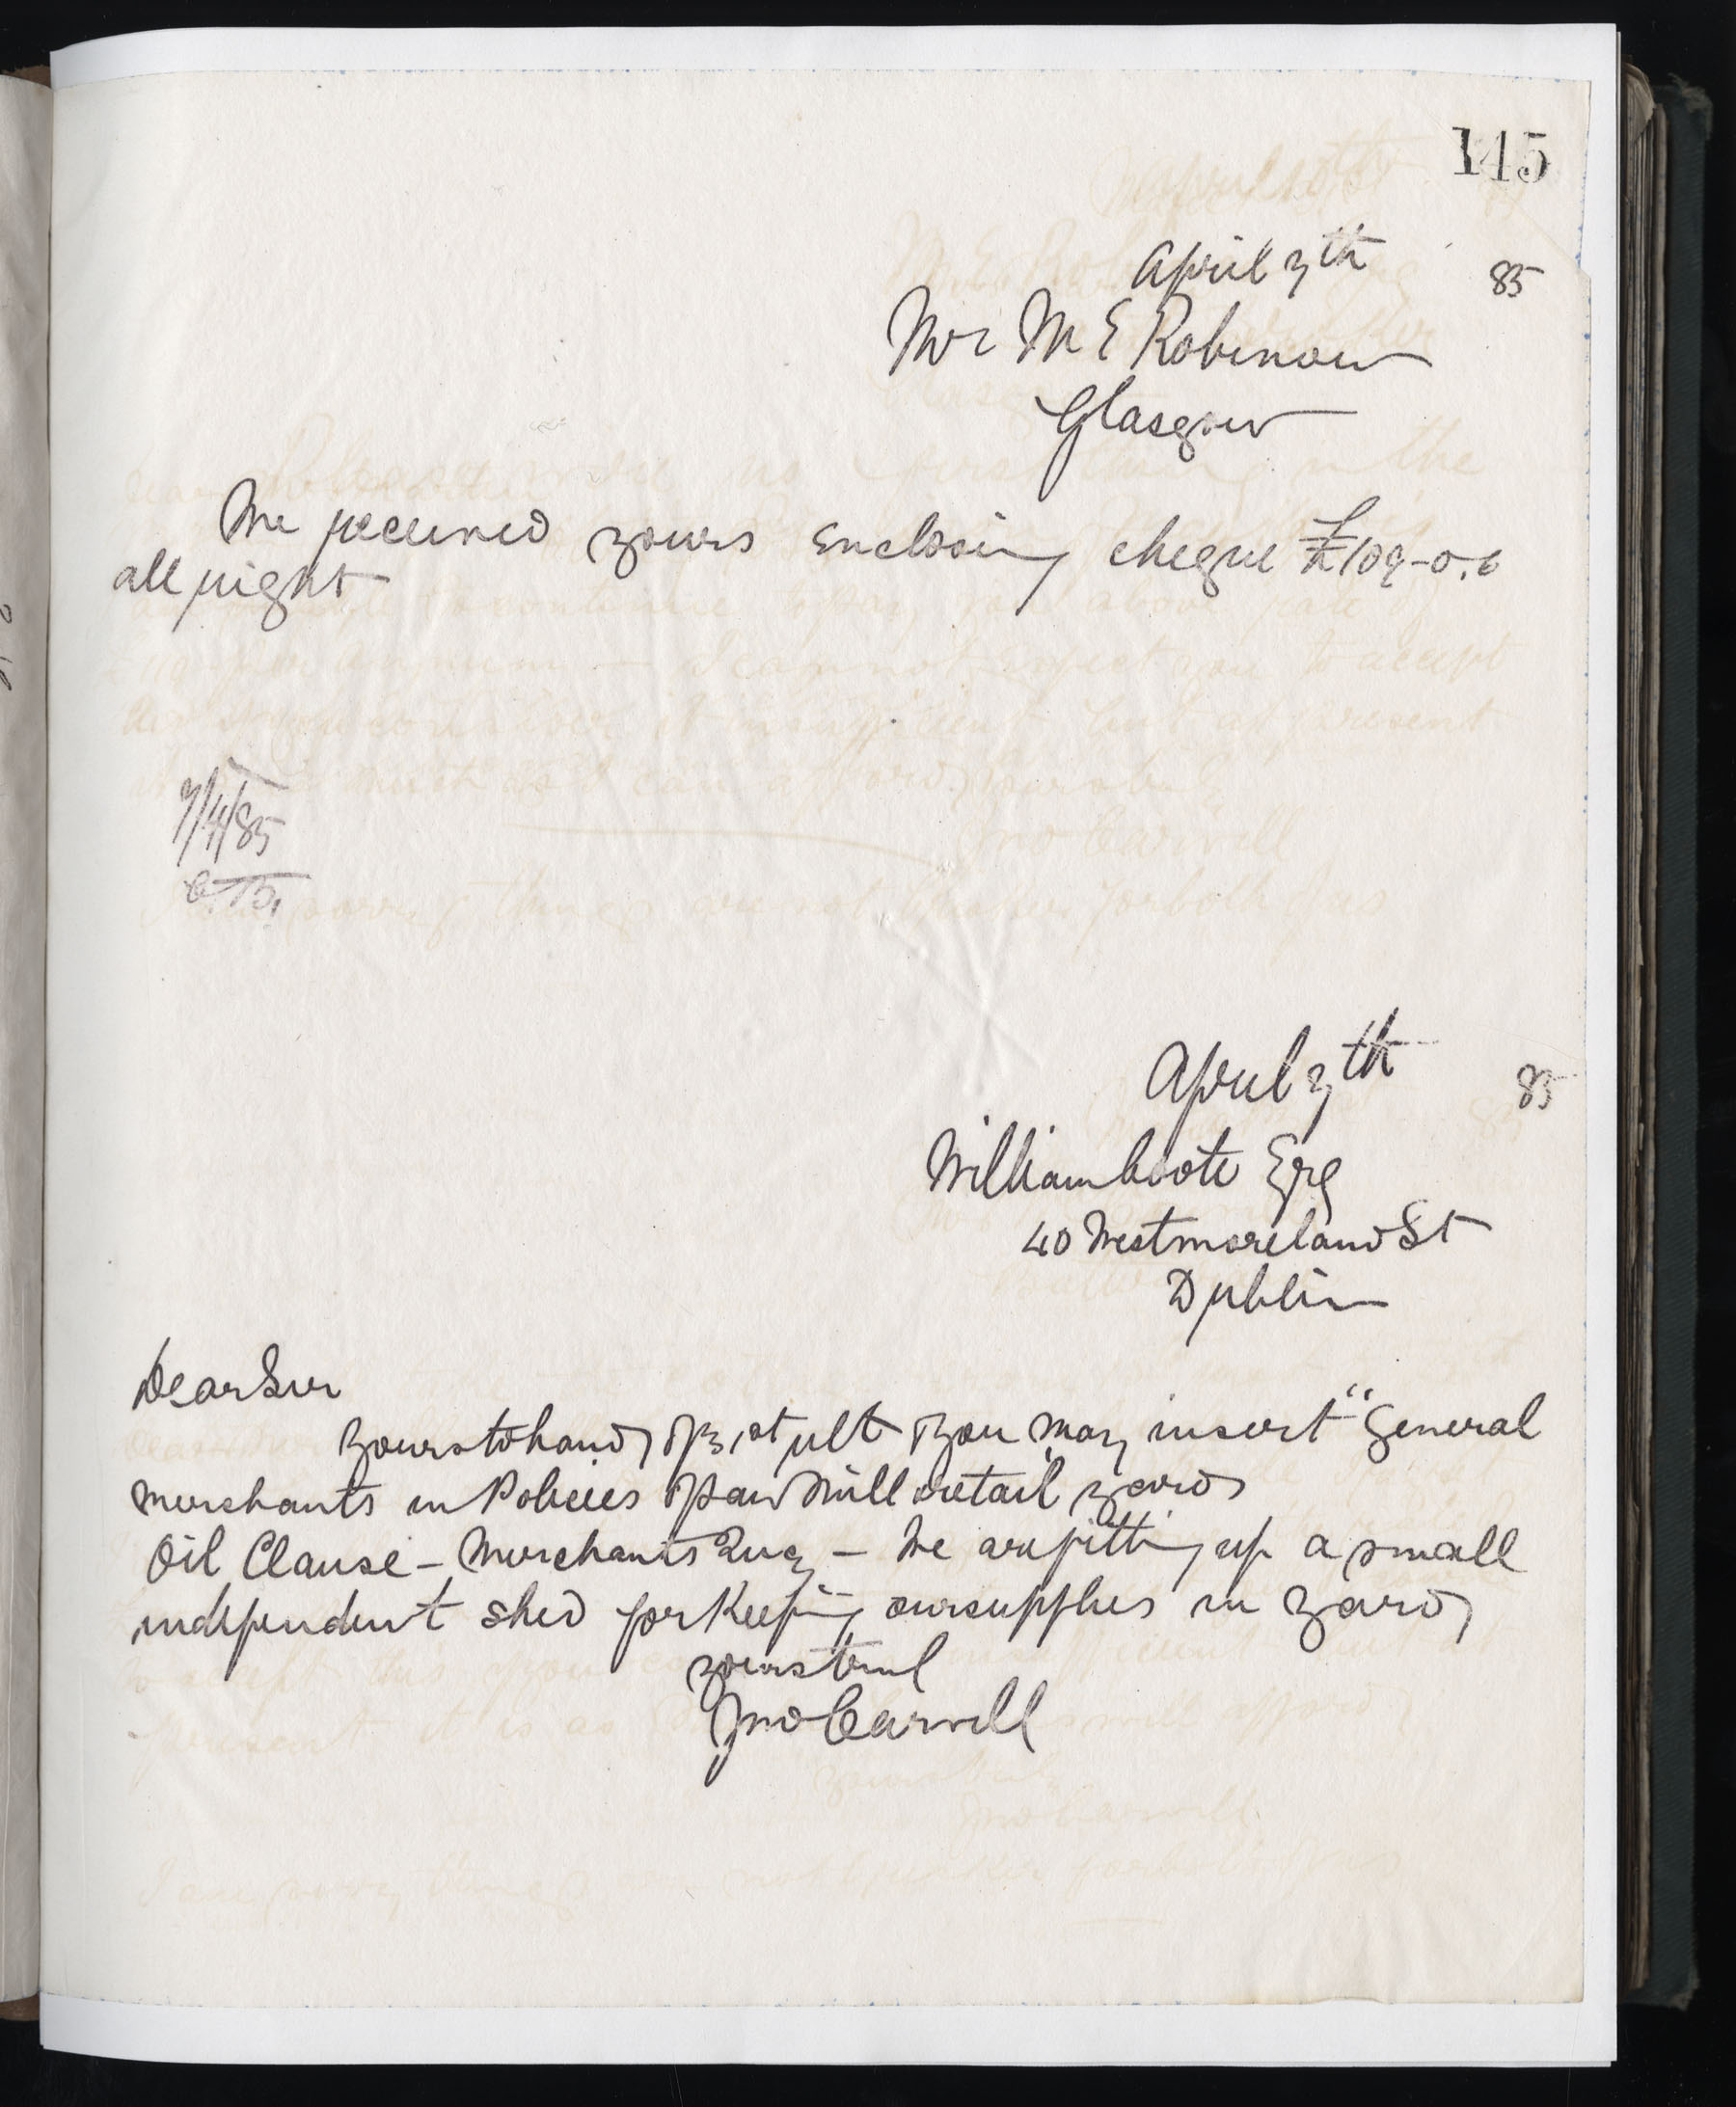 145
April 7th 85
Mr M E Robinow
Glasgow
We received yours enclosing cheque £109-0.6
all right
7/4/85
April 7th 85
William Coote Esq
40 Westmoreland St
Dublin
Dear Sir
Yours to hand of 31st ult You may insert "General
Merchants in Policies of Saw Mill & retail yard
Oil Clause - Merchants Quay - We are fitting up a small
independent shed for keeping our supplies in yard
yours trul
Jno Carvill